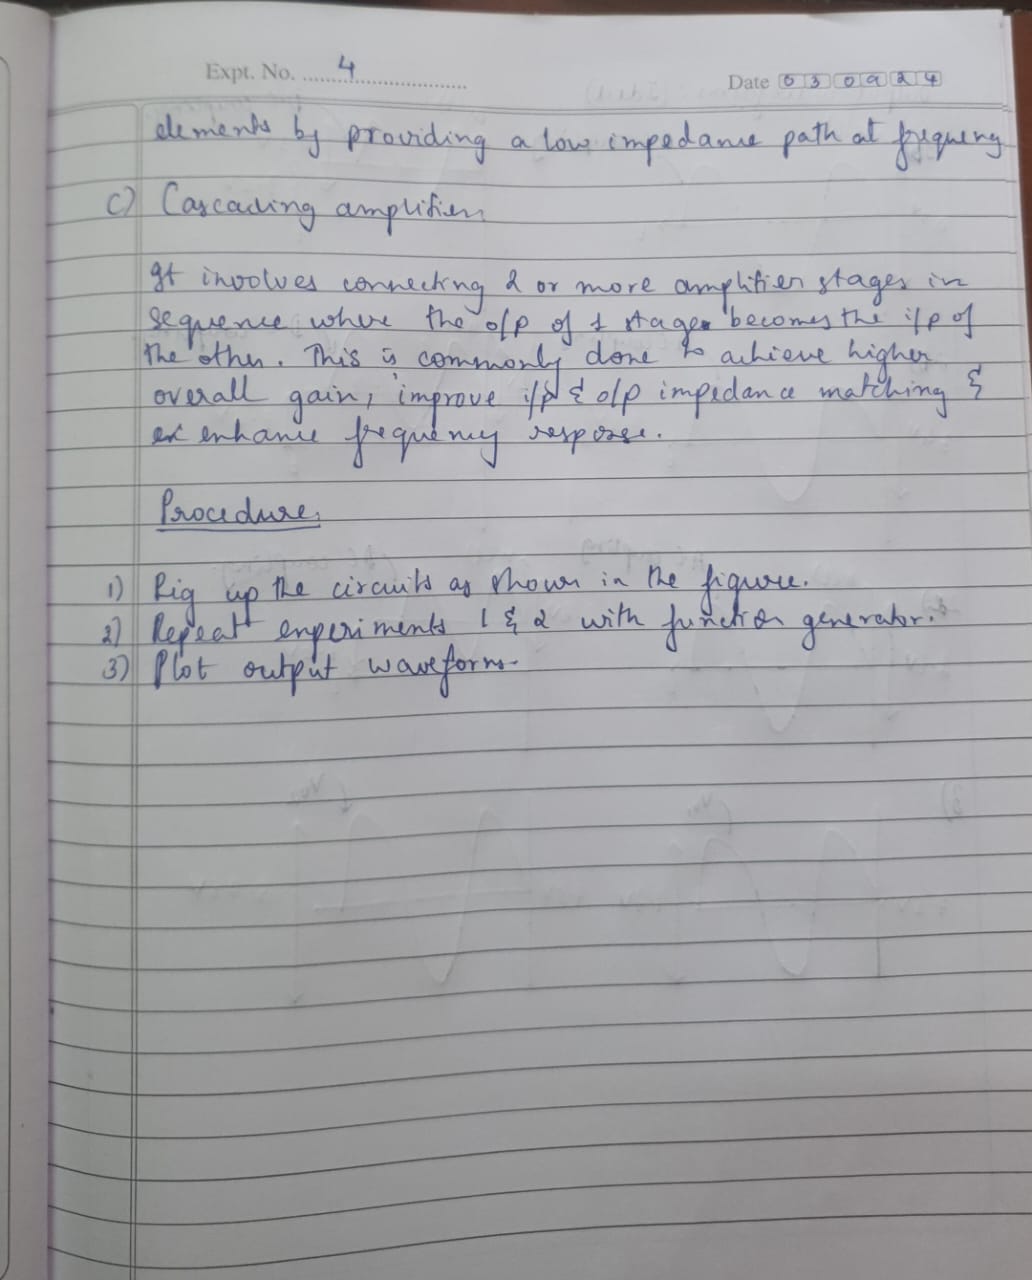 Expt. No. 4
Date 03 09 24
elements by providing a low impedance path at frequency
C) Cascading amplifier
It involves connecting 2 or more amplifier stages in
sequence where the o/p of 1 stage becomes the i/p of
the other. This is commonly done to achieve higher
overall gain, improve i/p & o/p impedance matching &
enhance frequency response.
Procedure:
1) Rig up the circuits as shown in the figure.
2) Repeat experiments 1 & 2 with function generator.
3) Plot output waveform.